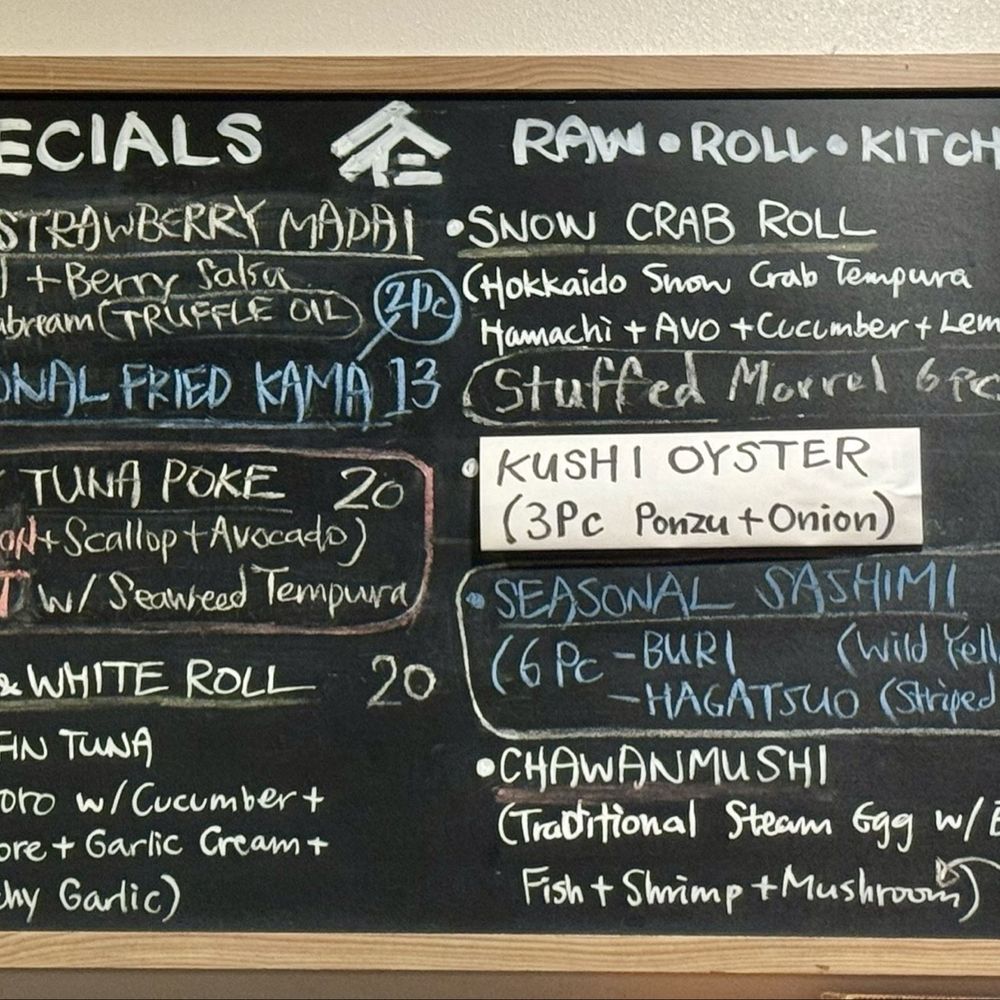 ECIALS
STRAWBERRY MADAI
+ Berry Salsa
bream (TRUFFLE OIL)
2Pc
ONAL FRIED KAMA 13
TUNA POKE 20
ON + Scallop + Avocado)
T w/ Seaweed Tempura
& WHITE ROLL 20
FIN TUNA
oro w/ Cucumber +
ore + Garlic Cream +
chy Garlic)
RAW • ROLL • KITCH
• SNOW CRAB ROLL
(Hokkaido Snow Crab Tempura
Hamachi + AVO + Cucumber + Lem
(Stuffed Morrel 6pc
• KUSHI OYSTER
(3Pc Ponzu + Onion)
• SEASONAL SASHIMI
(6 Pc - BURI (Wild Yell
- HAGATSUO (Striped
• CHAWANMUSHI
(Traditional Steam Egg w/
Fish + Shrimp + Mushroom)